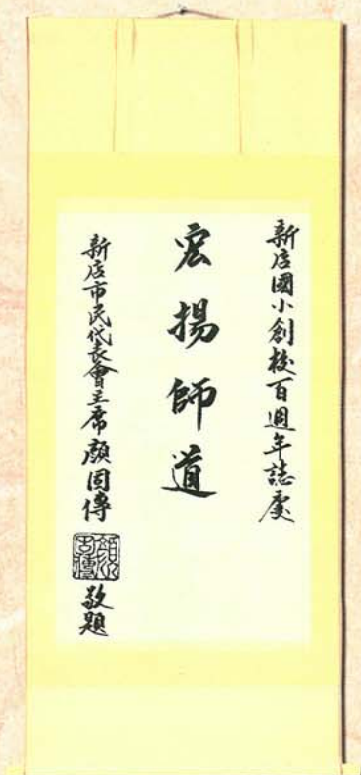 新店國小創校百週年誌慶
宏揚師道
新店市民代表會主席顏固傳
敬題